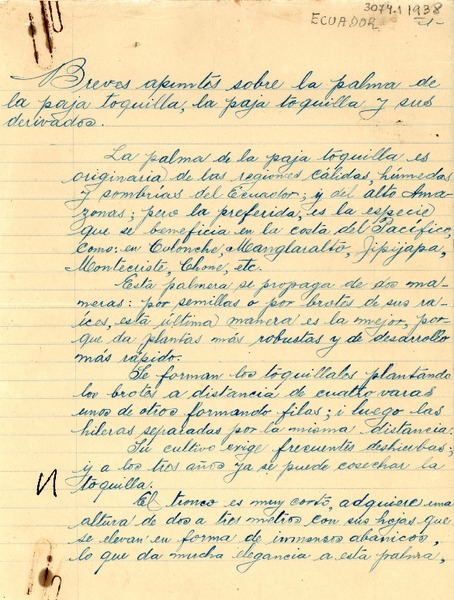 3074.1 1938
ECUADOR -1-
Breves apuntes sobre la palma de
la paja toquilla, la paja toquilla y sus
derivados.
La palma de la paja toquilla es
originaria de las regiones cálidas, húmedas
y sombrías del Ecuador; y del alto Ama-
zonas; pero la preferida, es la especie
que se beneficia en la costa del Pacífico,
como: en Colonche, Manglaralto, Jipijapa,
Montecriste, Chone, etc.
Esta palmera se propaga de dos ma-
neras: por semillas o por brotes de sus ra-
íces, esta última manera es la mejor, por-
que da plantas más robustas y de desarrollo
más rápido.
Se forman los toquillales plantando
los brotes a distancia de cuatro varas
unos de otros formando filas; i luego las
hileras separadas por la misma distancia.
Su cultivo exige frecuentes deshierbas;
y a los tres años ya se puede cosechar la
toquilla.
El tronco es muy corto, adquiere una
altura de dos a tres metros con sus hojas que
se elevan en forma de inmensos abanicos,
lo que da mucha elegancia a esta palma,